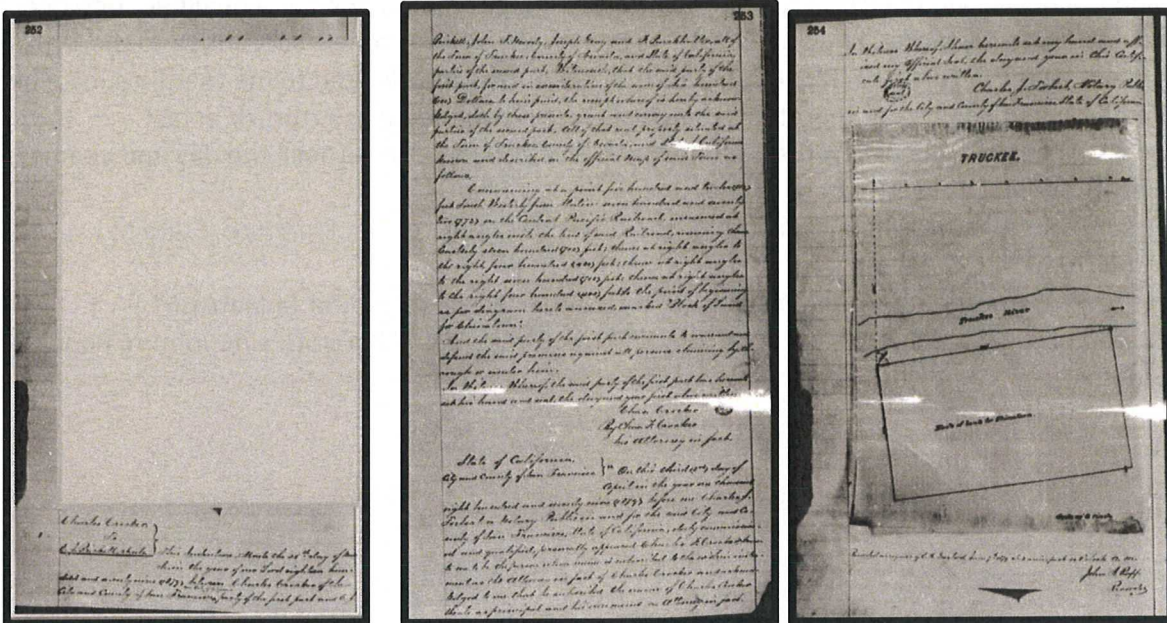 252
Charles Crocker
to
This Indenture, Made the day of
in the year of our Lord eighteen hun-
dred and seventy nine between Charles Crocker of the
City and County of San Francisco party of the first part and
253
John F. Moody, Joseph Gray and all of
the Town of Truckee, County of Nevada, and State of California,
parties of the second part, Witnesseth, that the said party of the
first part, for and in consideration of the sum of hundred
Dollars to him paid, the receipt whereof is hereby acknow-
ledged, doth by these presents, grant and convey unto the said
parties of the second part, all of that real property situated at
the Town of Truckee County of Nevada, and State of California
known and described on the official Map of said Town as
follows,
Commencing at a point five hundred and
feet South Westerly from Station seven hundred and seventy
two (772) on the Central Pacific Railroad, measured at
right angles with the line of said Railroad, running thence
Easterly seven hundred (700) feet; thence at right angles to
the right four hundred (400) feet; thence at right angles
to the right seven hundred (700) feet; thence at right angles
to the right four hundred (400) feet to the point of beginning
as per diagram hereto annexed, marked "Block of Land
for Chinatown."
And the said party of the first part to warrant and
defend the said premises against all persons claiming by th-
rough or under him.
In Witness Whereof, the said party of the first part has hereunto
set his hand and seal, the day and year first above written.
Chas. Crocker
By Chas. F. Crocker
his Attorney in fact
State of California,
City and County of San Francisco } On this third day of
April in the year one thousand
eight hundred and seventy nine (1879) before me Charles J.
Torbert a Notary Public in and for the said City and Co-
unty of San Francisco, State of California, duly commission-
ed and qualified, personally appeared Chas. F. Crocker
to me to be the person whose name is subscribed to the within instru-
ment as the Attorney in fact of Charles Crocker and acknow-
ledged to me that he subscribed the name of Charles Crocker
thereto as principal and his own name as Attorney in fact.
254
In Witness Whereof, I have hereunto set my hand and aff-
ixed my Official Seal, the day and year in this Certifi-
cate first above written.
Charles J. Torbert, Notary Public
in and for the City and County of San Francisco State of California
TRUCKEE.
Truckee River
Block of Land for Chinatown